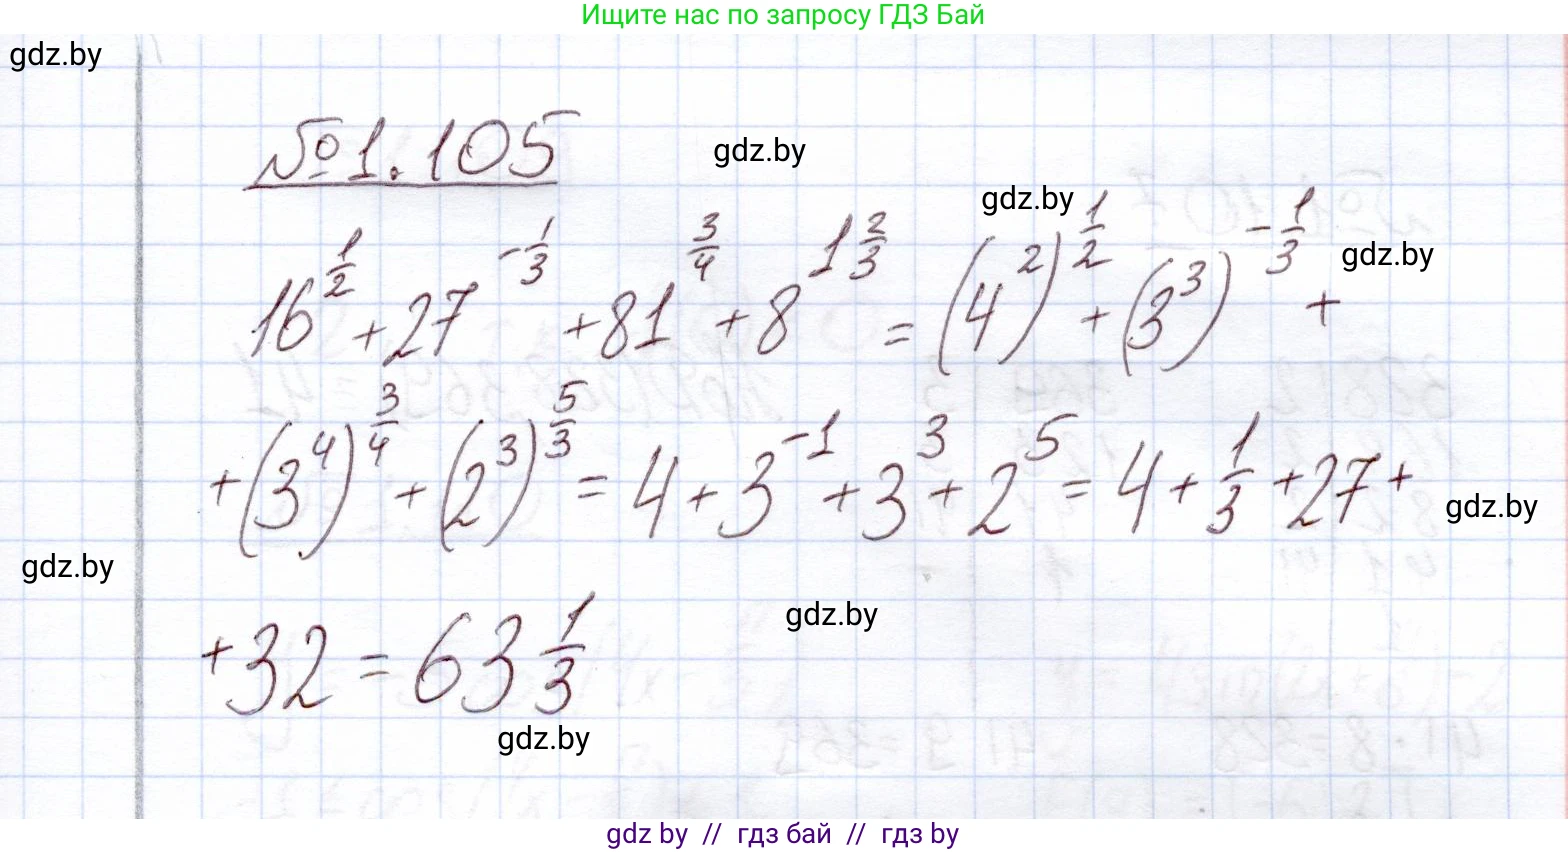 Ищите нас по запросу ГДЗ Бай
gdz.by
№1.105
gdz.by
gdz.by
gdz.by
16^{1/2} + 27^{-1/3} + 81^{3/4} + 8^{1 2/3} = (4^2)^{1/2} + (3^3)^{-1/3} +
+ (3^4)^{3/4} + (2^3)^{5/3} = 4 + 3^{-1} + 3^3 + 2^5 = 4 + 1/3 + 27 +
gdz.by
gdz.by
gdz.by
+ 32 = 63 1/3
gdz.by
gdz by // гдз бай // гдз by